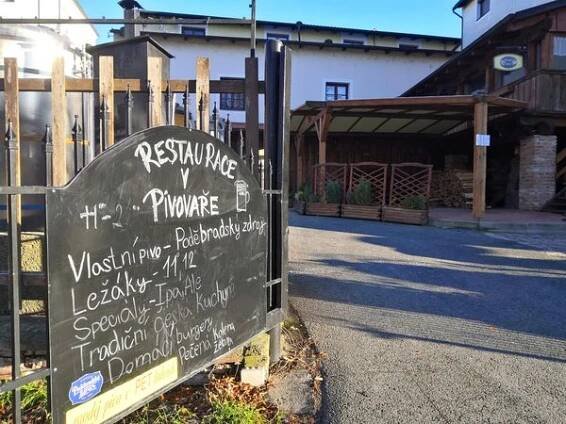 RESTAURACE
V
PIVOVAŘE
Vlastní pivo - Poděbradský zdroj
Ležáky - 11, 12
Speciály - Ipa, Ale
Tradiční česká kuchyně
Domácí burgery
Pečená kolena
žebra